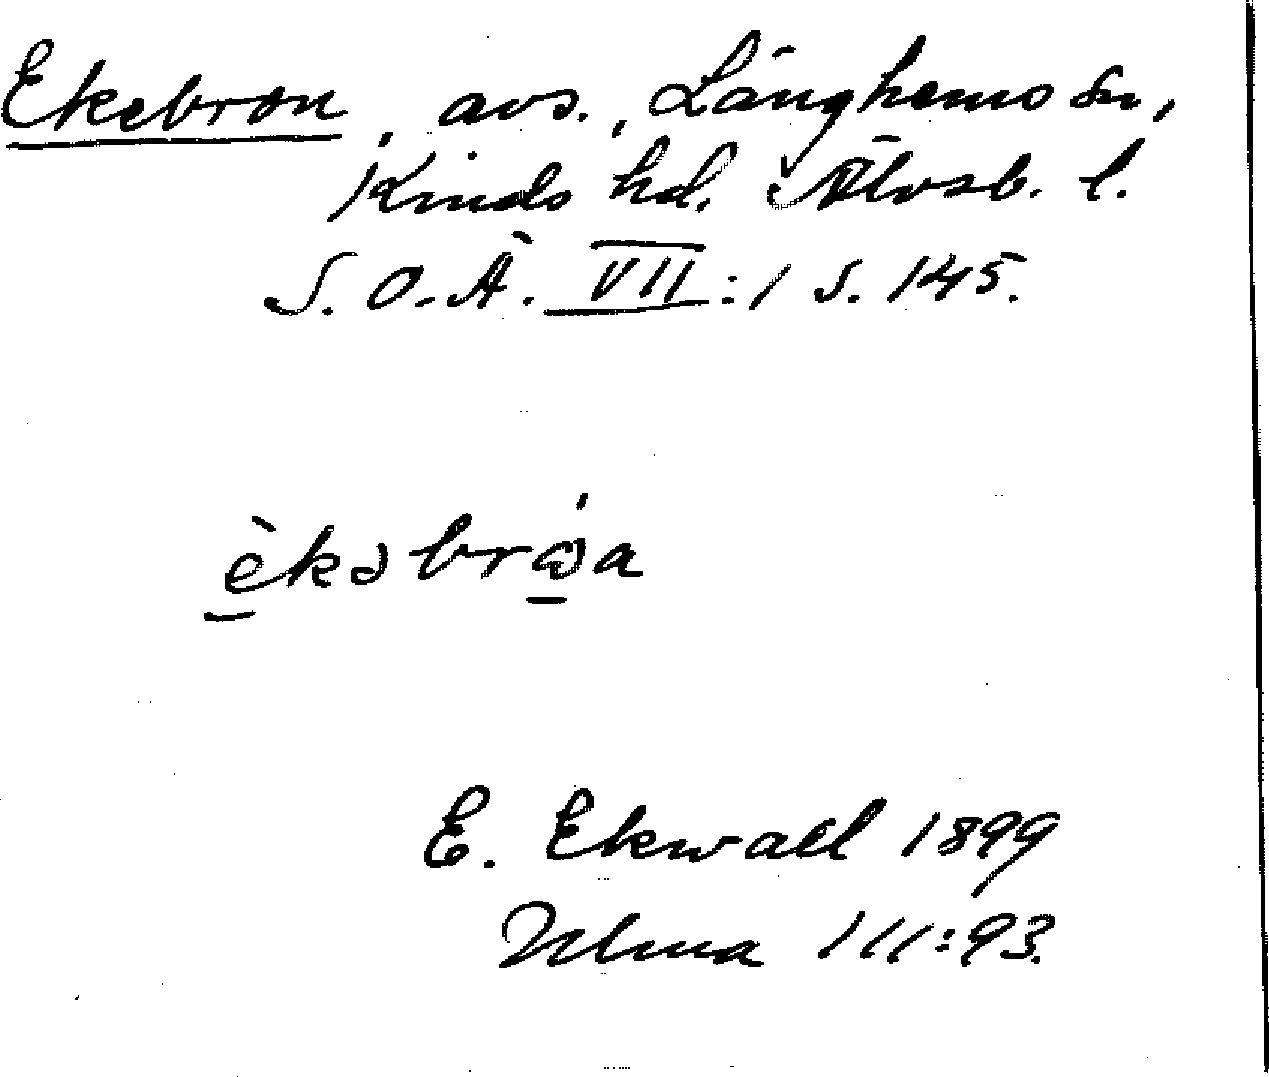 Ekebron, avs., Länghems sn,
Kinds hd. Älvsb. l.
S.O-Ä. VII:1 s. 145.
èkəbrὼa
E. Ekwall 1899
Ulma 111:93.